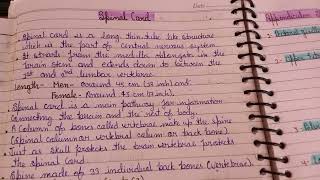 Spinal Cord
Date
Spinal cord is a long thin tube like structure
which is the part of central nervous system
It starts from the medulla oblongata in the
brain stem and extends down to between the
1st and 2nd lumbar vertebrae.
Length - Men - Around 45 cm (18 inch) and
Female - Around 43 cm (17 inch).
Spinal cord is a main pathway for information
connecting the brain and the rest of body.
A column of bones called vertebrae make up the spine
(Spinal column or vertebral column or back bone)
Just as skull protects the brain vertebrae protects
the spinal cord
Spine made of 33 individual back bones (vertebrae)
Appendicular
1.
2.
3.
4.